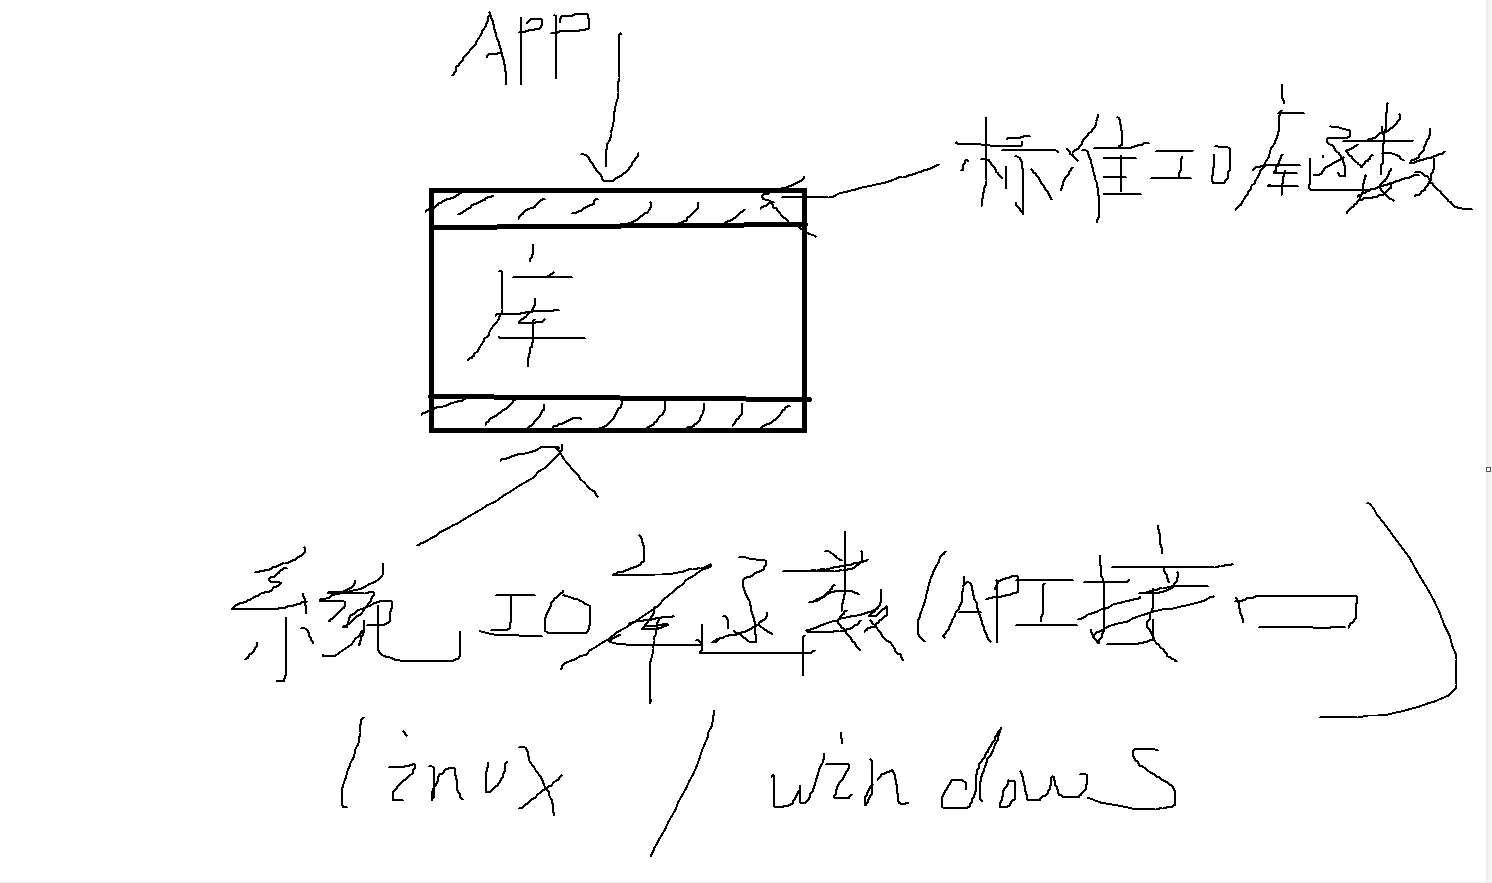 APP
标准IO库函数
库
系统IO库函数(API接口)
linux / windows